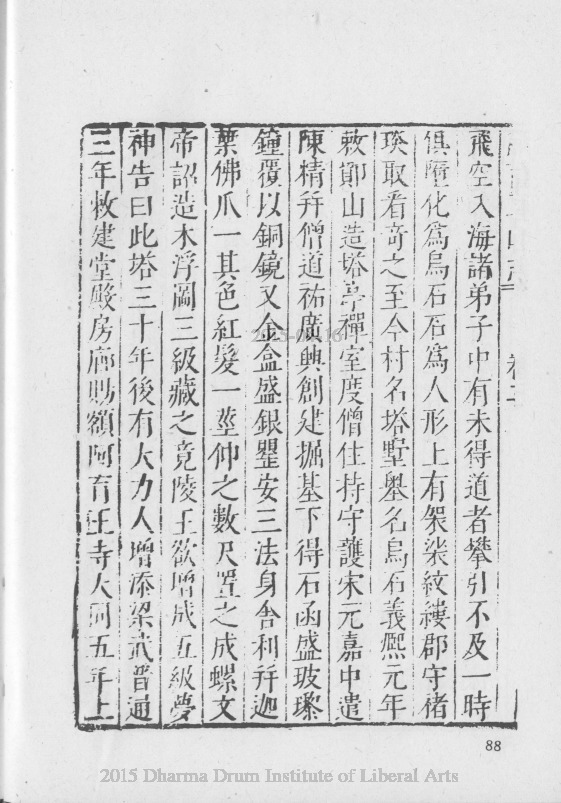 飛空入海諸弟子中有未得道者攀引不及一時
俱墮化為烏石石為人形上有袈裟紋縷郡守褚
琰取看奇之至今村名塔墅嶴名烏石義熙元年
敕鄮山造塔亭禪室度僧住持守護宋元嘉中遣
陳精并僧道祐廣興創建掘基下得石函盛玻瓈
鐘覆以銅鏡又金盒盛銀罌安三法身舍利并迦
葉佛爪一其色紅髮一莖伸之數尺置之成螺文
帝詔造木浮圖三級藏之竟陵王欲增成五級夢
神告曰此塔三十年後有大力人增添梁武普通
三年敕建堂殿房廊賜額阿育王寺大同五年上
88
2015 Dharma Drum Institute of Liberal Arts